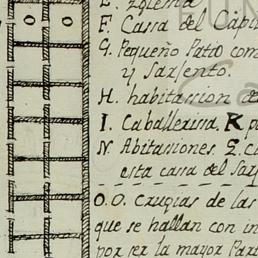 F. Casa del Capi
G. Pequeño Patio com
y Sarjento.
H. habitasion de
I. Caballerisa. K
N. Abitasiones, Z. Co
esta casa del Sarj
O.O. Crugias de las
que se hallan con in
por ser la mayor Part
O O